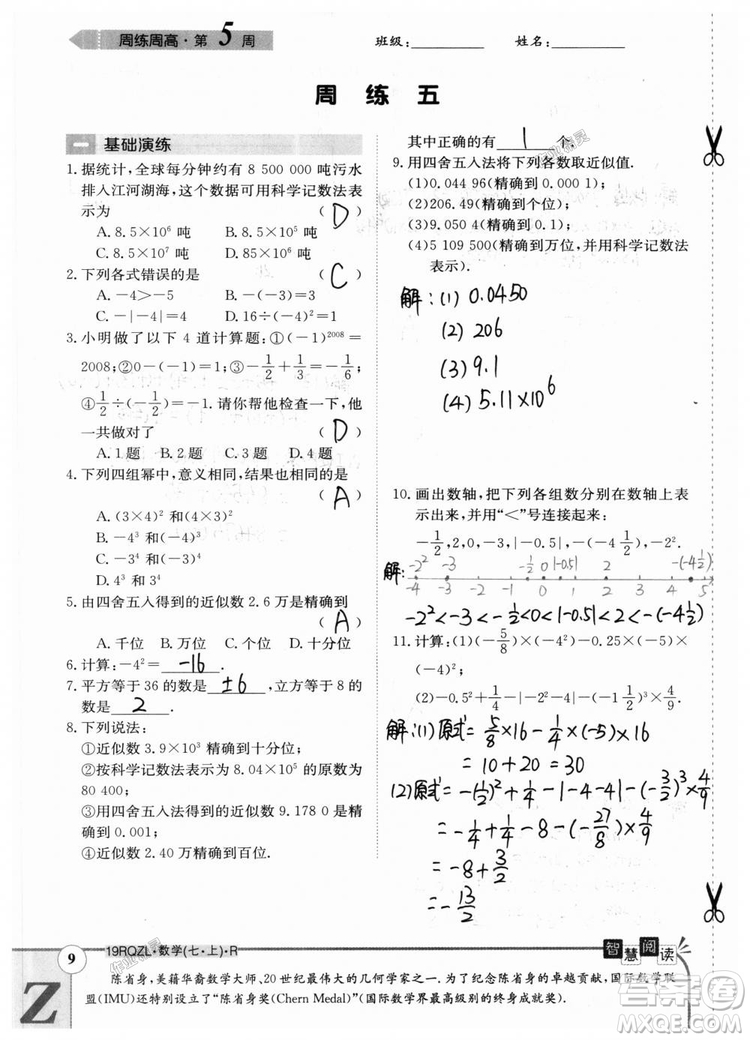 周练周高·第5周 班级:______ 姓名:______
周练五
一 基础演练
1.据统计,全球每分钟约有8 500 000吨污水
排入江河湖海,这个数据可用科学记数法表
示为 (D)
A. 8.5×10⁶ 吨 B. 8.5×10⁵ 吨
C. 8.5×10⁷ 吨 D. 85×10⁶ 吨
2.下列各式错误的是 (C)
A. −4>−5 B. −(−4)=4
C. −|−4|=4 D. 16÷(−4)²=1
3.小明做了以下 4 道计算题:①(−1)²⁰⁰⁸=
2008;②0−(−1)=1;③−1/2+1/3=−1/6;
④1/2÷(−1/2)=−1.请你帮他检查一下,他
一共做对了 (D)
A.1题 B.2题 C.3题 D.4题
4.下列四组幂中,意义相同,结果也相同的是
(A)
A. (3×4)² 和(4×3)²
B. 4³ 和 3⁴
C. −3⁴ 和(−3)⁴
5.由四舍五入得到的近似数 2.6 万是精确到
(A)
A.千位 B.万位 C.个位 D.十分位
6.计算:−4²= −16 .
7.平方等于 36 的数是 ±6 ,立方等于 8 的
数是 2 .
8.下列说法:
①近似数 3.9×10³ 精确到十分位;
②按科学记数法表示的 8.04×10⁵ 的原数是
80 400;
③用四舍五入法得到的近似数 9.178 0 是精
确到 0.001;
④近似数 2.40 万精确到百位.
其中正确的有 1 个.
9.用四舍五入法将下列各数取近似值.
(1)0.044 96(精确到 0.000 1);
(2)206.49(精确到个位);
(3)9.050 4(精确到 0.1);
(4)5 109 500(精确到万位,并用科学记数法
表示).
解:(1) 0.0450
(2) 206
(3) 9.1
(4) 5.11×10⁶
10.画出数轴,把下列各组数分别在数轴上表
示出来,并用“<”号连接起来:
−1/2,2,0,−3,|−0.5|,−(−4 1/2),−2².
解: −2² −3 −1/2 0 |−0.5| 2 −(−4 1/2)
−4 −3 −2 −1 0 1 2 3 4 5
−2²<−3<−1/2<0<|−0.5|<2<−(−4 1/2)
11.计算:(1)(−5/8)×(−4)²−0.25×(−5)×
(−4)²;
(2)−0.5²+1/4−|−2²−4|−(−1 1/2)³×4/9.
解:(1)原式=5/8×16−1/4×(−5)×16
=10+20=30
(2)原式=−(1/2)²+1/4−|−4−4|−(−3/2)³×4/9
=−1/4+1/4−8−(−27/8)×4/9
=−8+3/2
=−13/2
9 19RQZL·数学(七·上)·R 智慧阅读
陈省身,美籍华裔数学大师、20世纪最伟大的几何学家之一.为了纪念陈省身的卓越贡献,国际数学联
盟(IMU)还特别设立了“陈省身奖(Chern Medal)”(国际数学界最高级别的终身成就奖).
Z